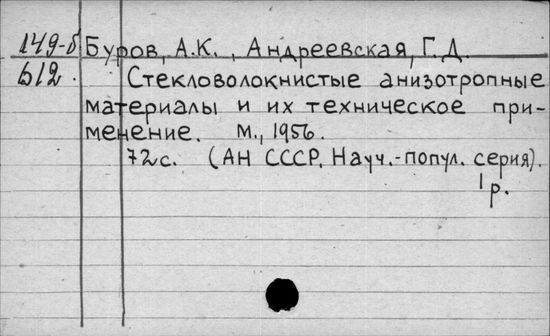 149-б Буров, А.К., Андреевская, Г.Д.
Б12. Стекловолокнистые анизотропные
материалы и их техническое при-
менение. М., 1956.
72с. (АН СССР. Науч.-попул. серия).
1р.